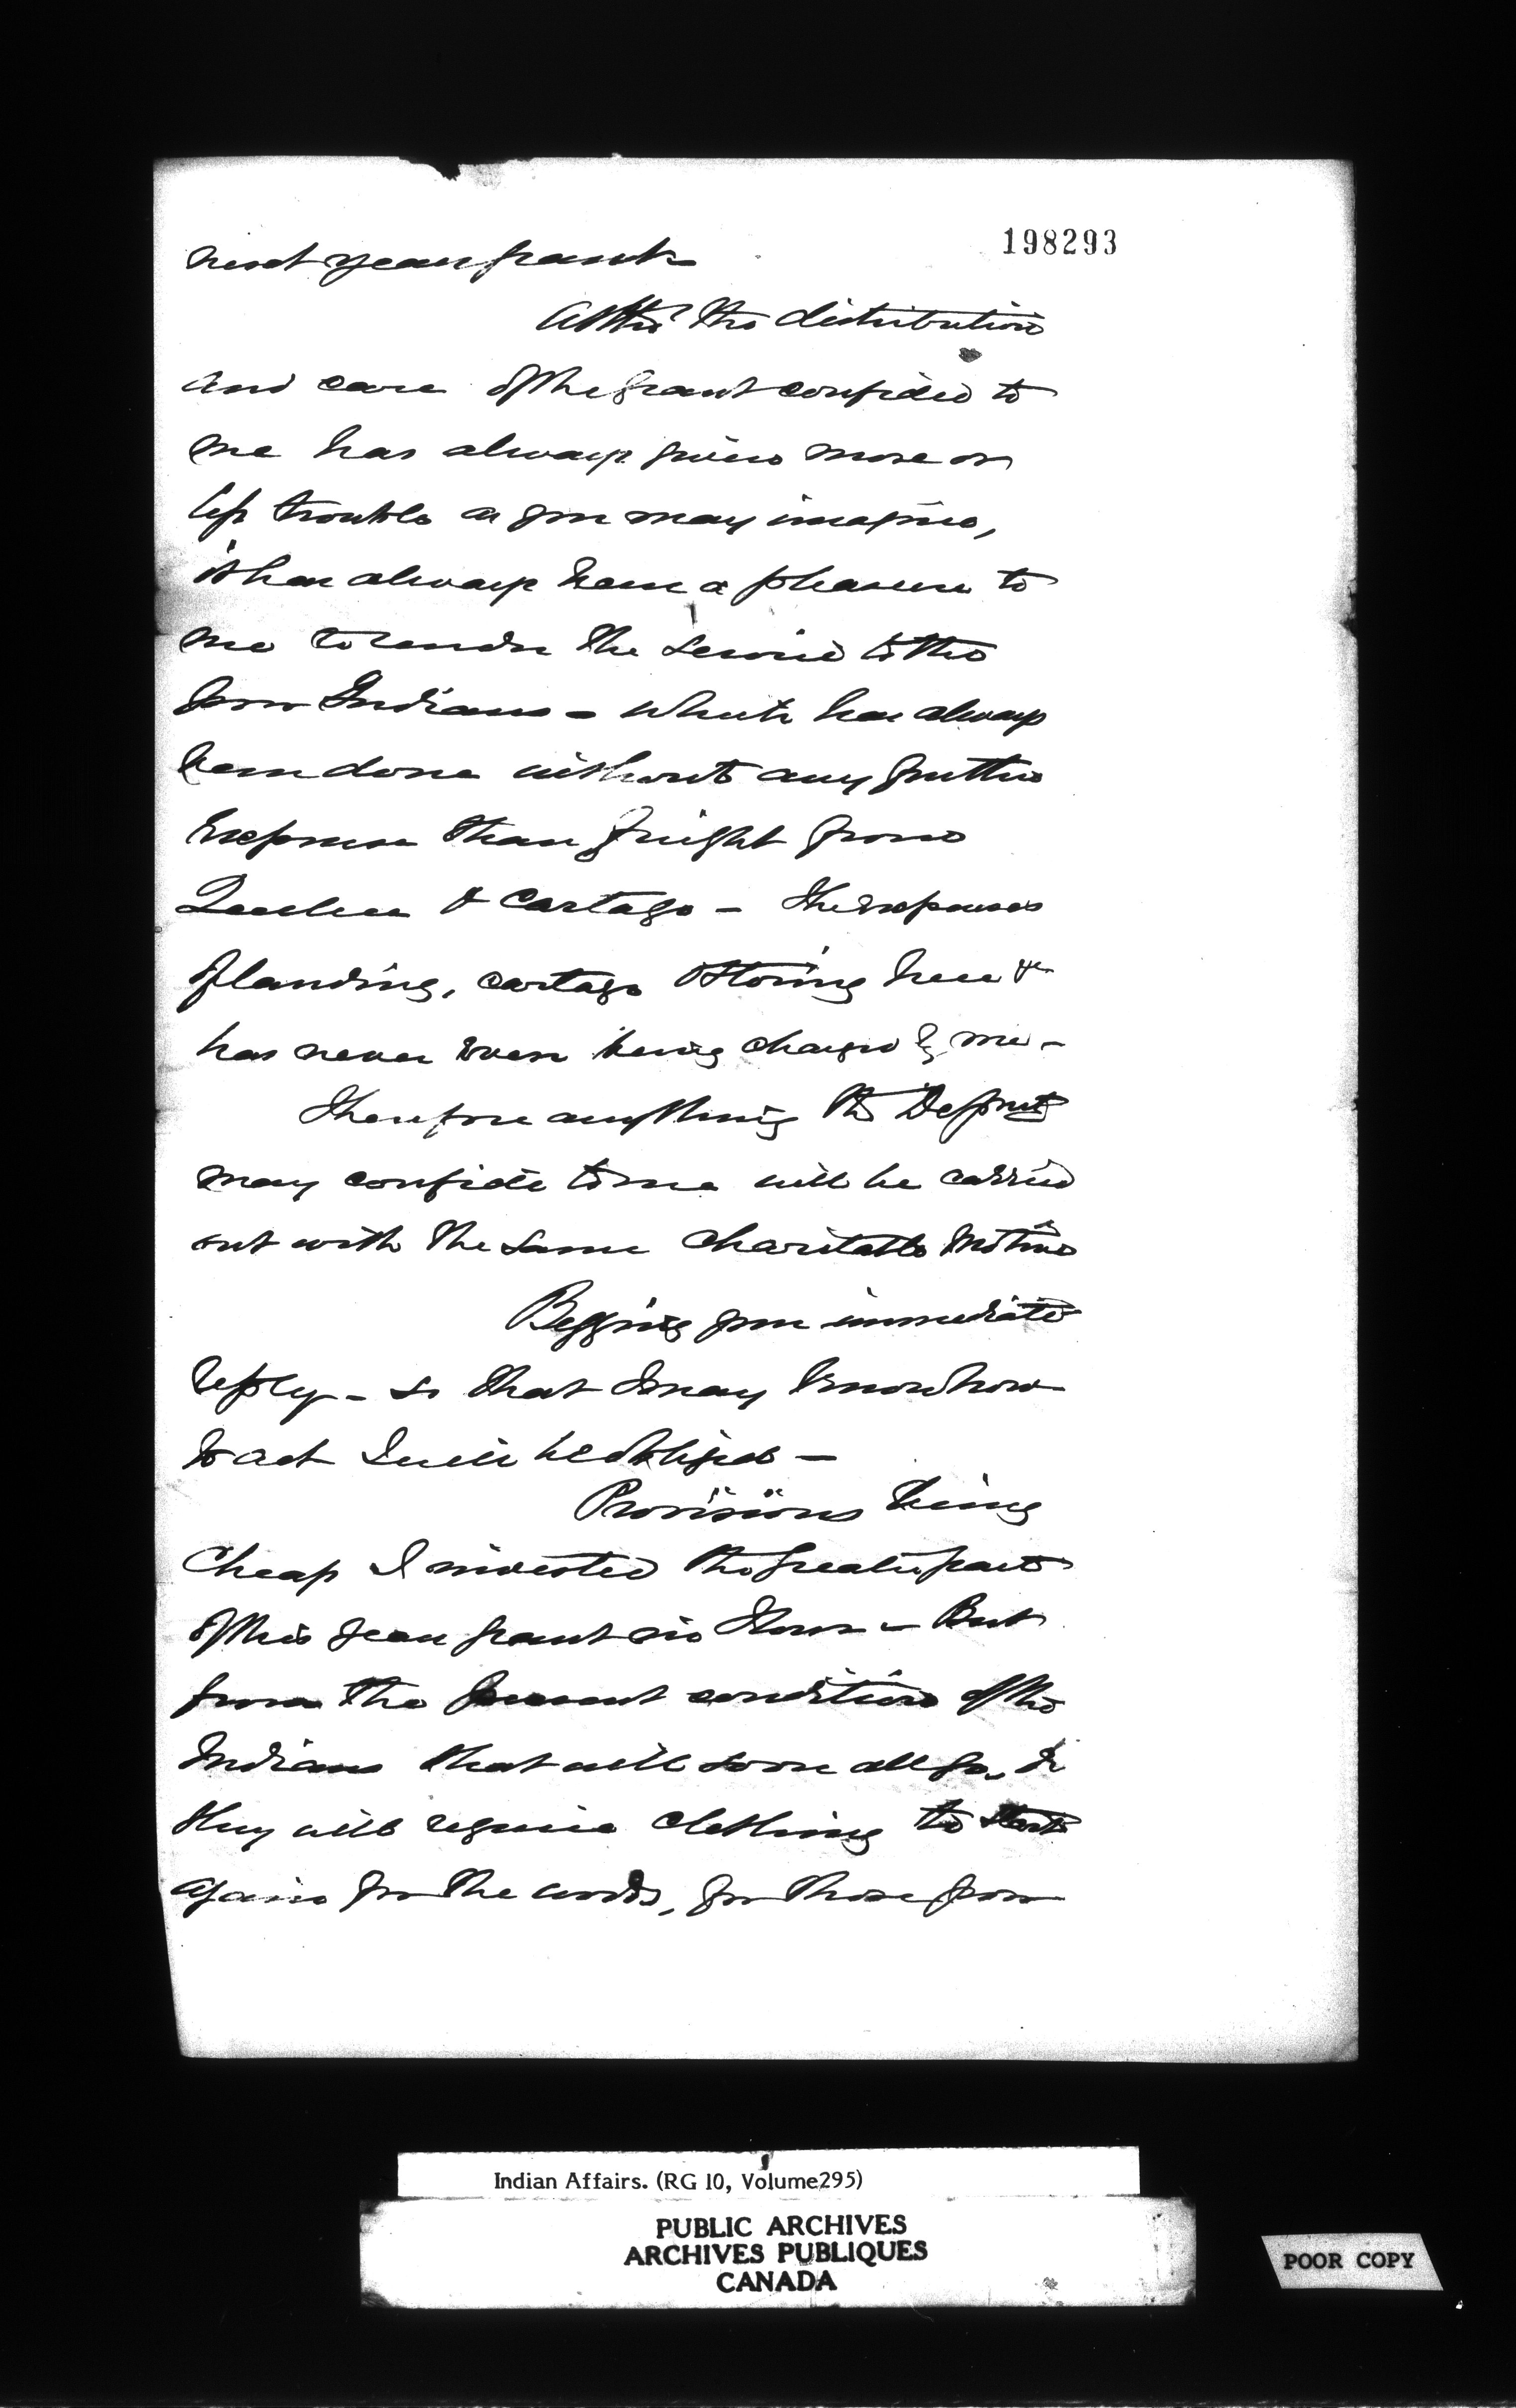 198293
next year grant
Altho' the distribution
and care of the grant confided to
me has always given more or
less trouble as you may imagine,
it has always been a pleasure to
me to render the service to the
poor Indians - which has always
been done without any further
expense than freight from
Quebec & Cartage - The expenses
of landing, cartage & storing here &c
has never even being charged by me -
Therefore anything the Depmt
may confide to me will be carried
out with the same charitable motive
Begging your immediate
reply - so that I may know how
to act I will be obliged -
Provisions being
cheap I invested the greater part
of this year grant in flour - But
from the present condition of the
Indians that will soon all go, &
they will require clothing to start
again for the woods, for those poor
Indian Affairs. (RG 10, Volume 295)
PUBLIC ARCHIVES
ARCHIVES PUBLIQUES
CANADA
POOR COPY